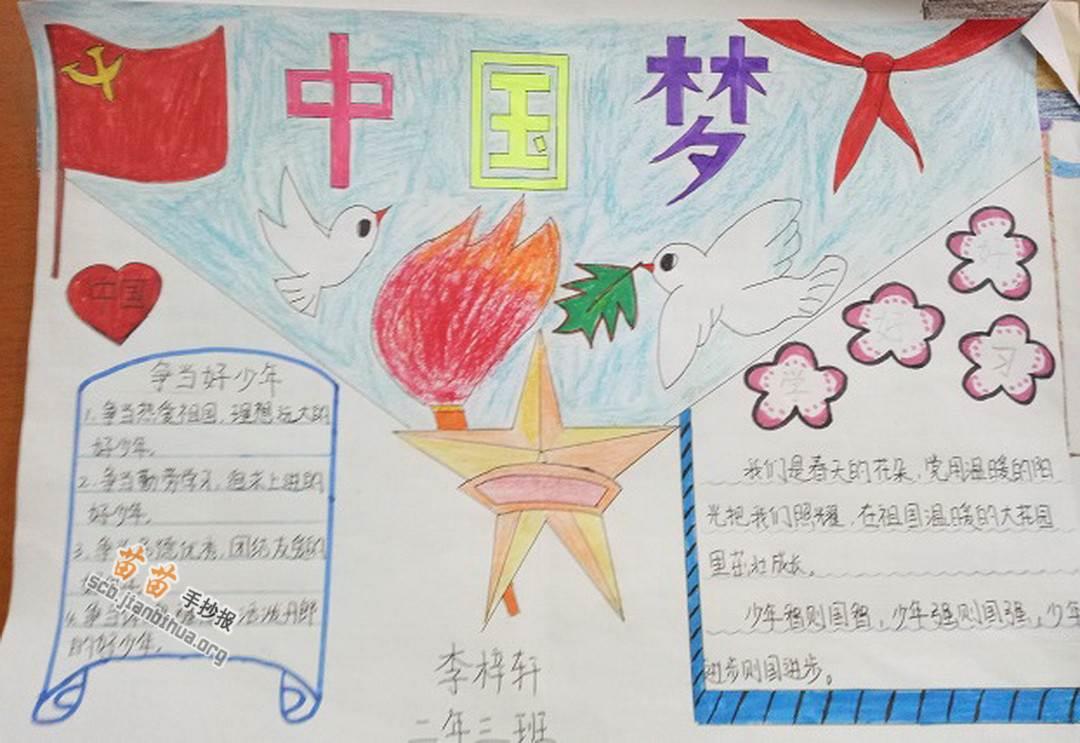 中国梦
中国
好
好
学
习
争当好少年
1.争当热爱祖国,理想远大的
好少年。
2.争当勤劳学习,追求上进的
好少年。
3.争当 德优秀,团结友爱的
4.争当 活泼开朗
的好少年。
苗苗手抄报
scb.jianbihua.org
我们是春天的花朵,党用温暖的阳
光把我们照耀,在祖国温暖的大花园
里茁壮成长。
少年智则国智,少年强则国强,少年
进步则国进步。
李梓轩
二年三班